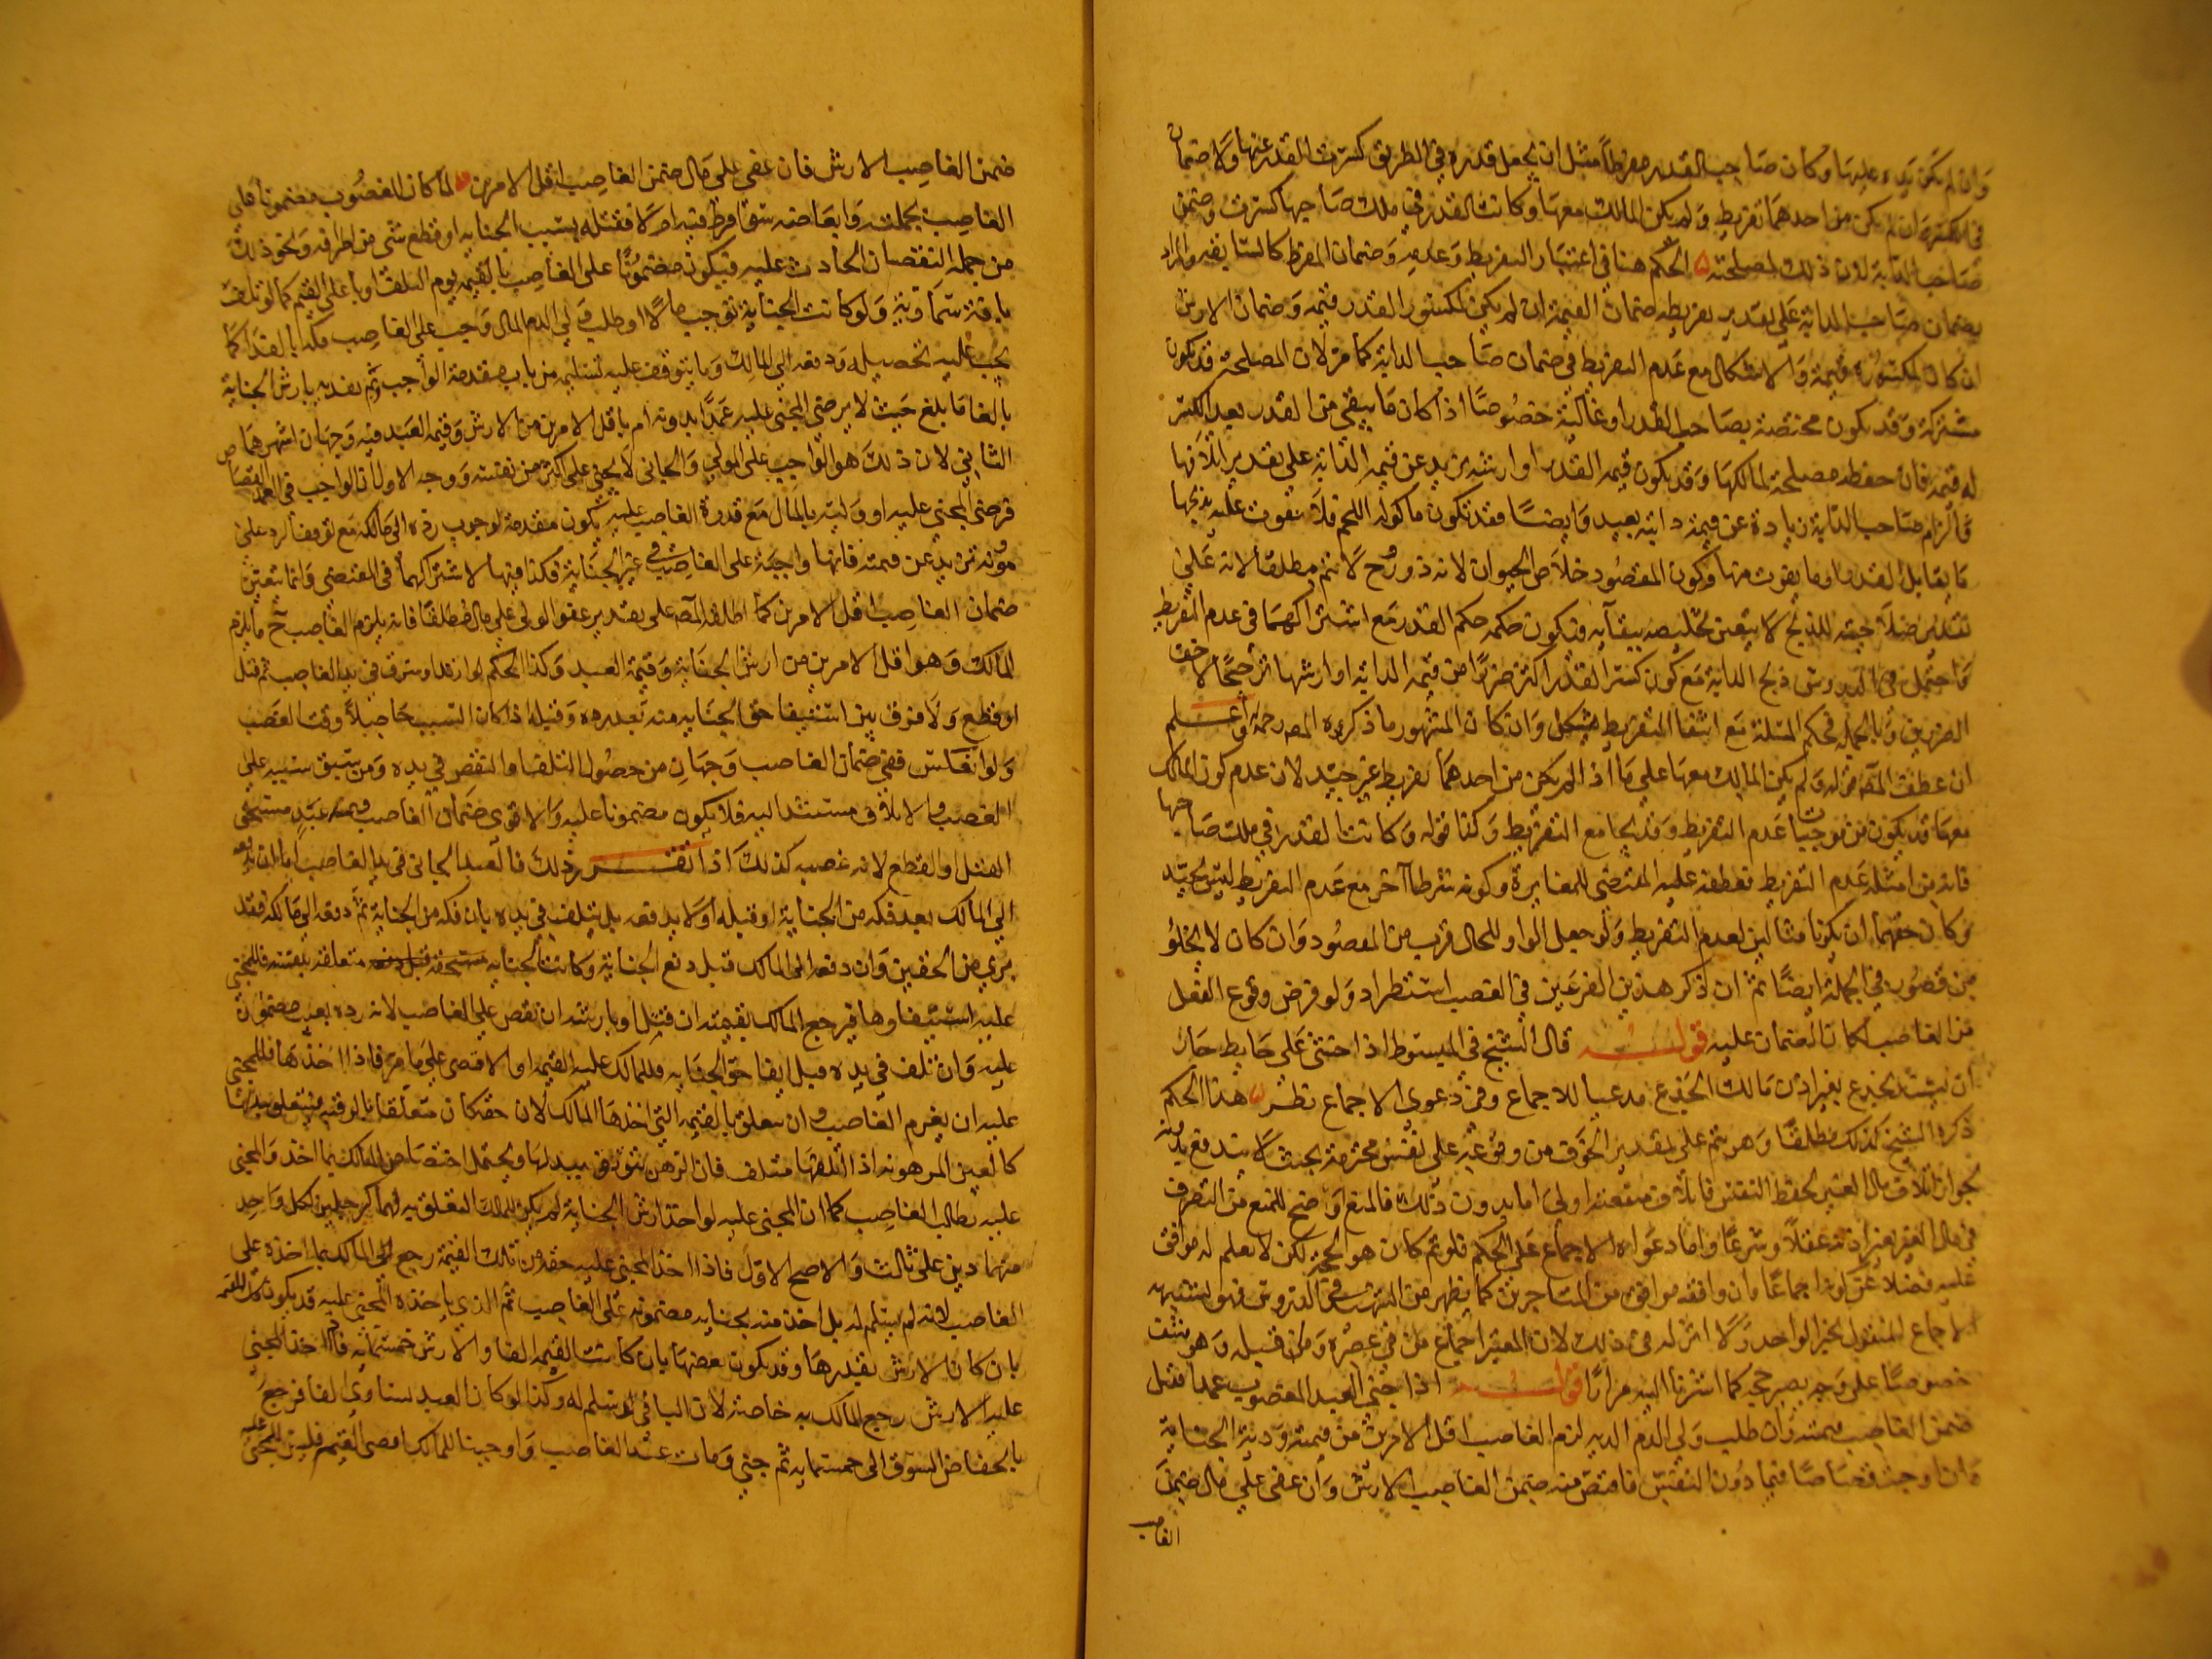 وان لم يكن يده عليها وكان صاحب القدر مفرطا مثل ان يجعل قدره في الطريق كسرت القدر عنها ولا ضمان
في الكسر وان لم يكن من احدهما تفريط ولم يكن المالك معها وكانت القدر في ملك صاحبها كسرت وضمن
صاحب الدابة لان ذلك لمصلحته ۵ الحكم هنا في اعتبار التفريط وعدمه وضمان المفرط كالسابقه والمراد
بضمان صاحب الدابة على تقدير تفريطه ضمان القيمة ان لم يكن لمكسور القدر قيمة وضمان الارش
ان كان لمكسوره قيمة والاشكال مع عدم التفريط في ضمان صاحب الدابة كما مر لان المصلحة قد تكون
مشتركة وقد تكون مختصة بصاحب القدر او غالبية خصوصا اذا كان ما يبقى من القدر بعد الكسر
له قيمة فان حفظه مصلحة لمالكها وقد يكون قيمة القدر او ارشه يزيد عن قيمة الدابة على تقدير اتلافها
فالزام صاحب الدابة زيادة عن قيمة دابته بعيد وايضا فقد تكون ماكوله اللحم فلا تفوت عليه بذبحها
ما يقابل القدر او ما يفوت منها وكون المقصود خلاص الحيوان لانه ذو روح لا يتم مطلقا لانه على
تقدير صلاحيته للذبح لا يتعين تخليصه ببقائه فيكون حكمه حكم القدر مع اشتراكهما في عدم التفريط
واحتمل في الدروس ذبح الدابة مع كون كسر القدر اكثر ضررا من قيمة الدابة او ارشها ترجيحا لاخف
الضررين وبالجملة فحكم المسئلة مع انتفا التفريط مشكل وان كان المشهور ما ذكره المصه رحمه الله واعلم
ان عطف المصه قوله ولم يكن المالك معها على ما اذا لم يكن من احدهما تفريط غير جيد لان عدم كون المالك
معها قد يكون من موجبات عدم التفريط وقد يجامع التفريط وكذا قوله وكانت القدر في ملك صاحبها
فانه من امثلة عدم التفريط فعطفه عليه المقتضي للمغايرة وكونه شرطا آخر مع عدم التفريط ليس بجيد
وكان حقهما ان يكونا مثالين لعدم التفريط ولو جعل الواو للحال قرب من المقصود وان كان لا يخلو
من قصور في الجملة ايضا ثم ان ذكر هذين الفرعين في الغصب استطراد ولو فرض وقوع الفعل
من الغاصب كان الضمان عليه قولـه قال الشيخ في المبسوط اذا خشي على حايط جاز
ان يسند بجذع بغير اذن مالك الجذع مدعيا للاجماع وفي دعوى الاجماع نظر ۵ هذا الحكم
ذكره الشيخ كذلك مطلقا وهو يتم على تقدير الخوف من وقوعه على نفس محترمة بحيث لا يندفع بدونه
لجواز اتلاف مال الغير لحفظ النفس فاتلاف منفعته اولى اما بدون ذلك فالمنع اوضح للمنع من التصرف
في مال الغير بغير اذنه عقلا وشرعا واما دعواه الاجماع على الحكم فلو تم كان هو الحجة لكن لا يعلم له موافق
عليه فضلا عن كونه اجماعا وان وافقه موافق من المتاخرين كما يظهر من الشهيد في الدروس فهو لشبهة
الاجماع المنقول بخبر الواحد ولا اثر له في ذلك لان المعتبر اجماع من في عصره ومن قبله وهو منتف
خصوصا على وجه يصير حجة كما اشرنا اليه مرارا قولـه اذا جنى العبد المغصوب عمدا فقتل
ضمن الغاصب قيمته وان طلب ولي الدم الدية لزم الغاصب اقل الامرين من قيمته ودية الجناية
وان اوجبت قصاصا فيما دون النفس فاقتص منه ضمن الغاصب الارش وان عفى على مال ضمن
الغاصب
ضمن الغاصب الارش فان عفى على مال ضمن الغاصب اقل الامرين ۵ لما كان المغصوب مضمونا على
الغاصب بجملته وابعاضه سوا فرط فيه ام لا فقتله بسبب الجنايه او قطع شي من اطرافه ونحو ذلك
من جملة النقصان الحادث عليه فيكون مضمونا على الغاصب بالقيمة يوم التلف او باعلى القيم كما لو تلف
بافة سماوية ولو كانت الجناية توجب مالا او طلب ولي الدم المال وجب على الغاصب فكه بالفداء كما
يجب عليه تحصيله ودفعه الى المالك وما يتوقف عليه تسليمه من باب مقدمة الواجب وثم يفديه بارش الجناية
بالغا ما بلغ حيث لا يرضى المجني عليه عمدا بدونه ام باقل الامرين من الارش وقيمة العبد فيه وجهان اشهرهما
الثاني لان ذلك هو الواجب على المولى والجاني لا يجني على اكثر من نفسه ووجه الاول ان الواجب في العمد القصاص
فرضى المجني عليه او وليه بالمال مع قدرة الغاصب عليه يكون مقدمة لوجوب رده الى مالكه مع توقف الرد على
مؤنة تزيد عن قيمته فانها واجبة على الغاصب في غير الجناية فكذا فيها لاشتراكهما في المقتضي وانما يتعين
ضمان الغاصب اقل الامرين كما اطلقه المصه على تقدير عفو الولي على مال مطلقا فانه يلزم الغاصب ح ما يلزم
المالك وهو اقل الامرين من ارش الجناية وقيمة العبد وكذا الحكم لو ارتد او سرق في يد الغاصب ثم قتل
او قطع ولا فرق بين استيفا حق الجنايه منه بعد رده وقبله اذا كان السبب حاصلا وقت الغصب
ولو انعكس ففي ضمان الغاصب وجهان من حصول التلف او النقص في يده ومن سبق سببه على
الغصب والاتلاف مستند اليه فلا يكون مضمونا عليه والاقوى ضمان الغاصب قيمة عبد مستحق
القتل والقطع لانه غصبه كذلك اذا تقـرر ذلك فالعبد الجاني في يد الغاصب اما ان يرده
الى المالك بعد فكه من الجناية او قبله او لا يدفعه بل يتلف في يده بان فكه من الجناية ثم دفعه الى مالكه فقد
بري من الحقين وان دفعه الى المالك قبل دفع الجناية وكانت الجنايه متعلقة برقبته فللمجني
عليه استيفاوها فيرجع المالك بقيمته ان قتل او بارشه ان نقص على الغاصب لانه رده بعيب مضمون
عليه وان تلف في يده قبل ايفا حق الجنايه فللمالك عليه القيمة او الاقصى على ما مر فاذا اخذها فللمجني
عليه ان يغرم الغاصب وان يتعلق بالقيمة التي اخذها المالك لان حقه كان متعلقا بالرقبة فيتعلق ببدلها
كالعين المرهونه اذا اتلفها متلف فان الرهن يتوثق ببدلها ويحتمل اختصاص المالك بما اخذ والمجني
عليه يطالب الغاصب كما ان المجني عليه لو اخذ ارش الجناية لم يكن للمالك التعلق به فهما كرجلين لكل واحد
منهما دين على ثالث والاصح الاول فاذا اخذ المجني عليه حقه من تلك القيمة رجع المالك بما اخذه على
الغاصب لانه لم يسلم له بل اخذ منه بجنايه مضمونة على الغاصب ثم الذي ياخذه المجني عليه قد يكون كل القيمة
بان كان الارش بقدرها وقد يكون بعضها بان كانت القيمة الفا والارش خمسمائه فاذا اخذ المجني
عليه الارش رجع المالك به خاصة لان الباقي قد سلم له وكذا لو كان العبد يساوي الفا فرجع
بانخفاض السوق الى خمسمايه ثم جنى ومات عند الغاصب واوجبنا للمالك اقصى القيم فليس للمجني عليه